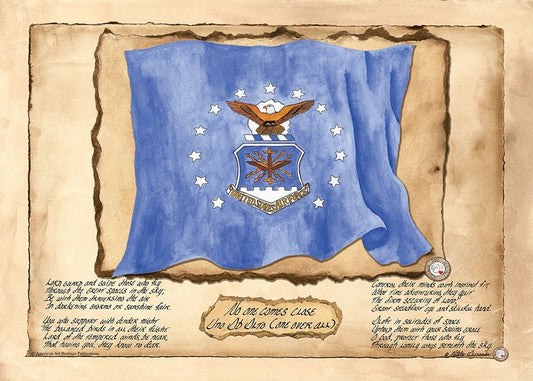 UNITED STATES AIR FORCE
Lord guard and guide those who fly
Through the great spaces in the sky;
Be with them traversing the air
In darkening storms or sunshine fair.
You who support with tender might
The balanced birds in all their flight
Lord of the tempered winds, be near,
That having you, they know no fear.
No one comes close
(Uno Ab Alto (One over all)
Control their minds with instinct fit
What time adventuring, they quit
The firm security of land;
Grant steadfast eye and skillful hand.
Aloft in solitudes of space
Uphold them with your saving grace
O God, protect those who fly
Through lonely ways beneath the sky.
© American Art Heritage Publications